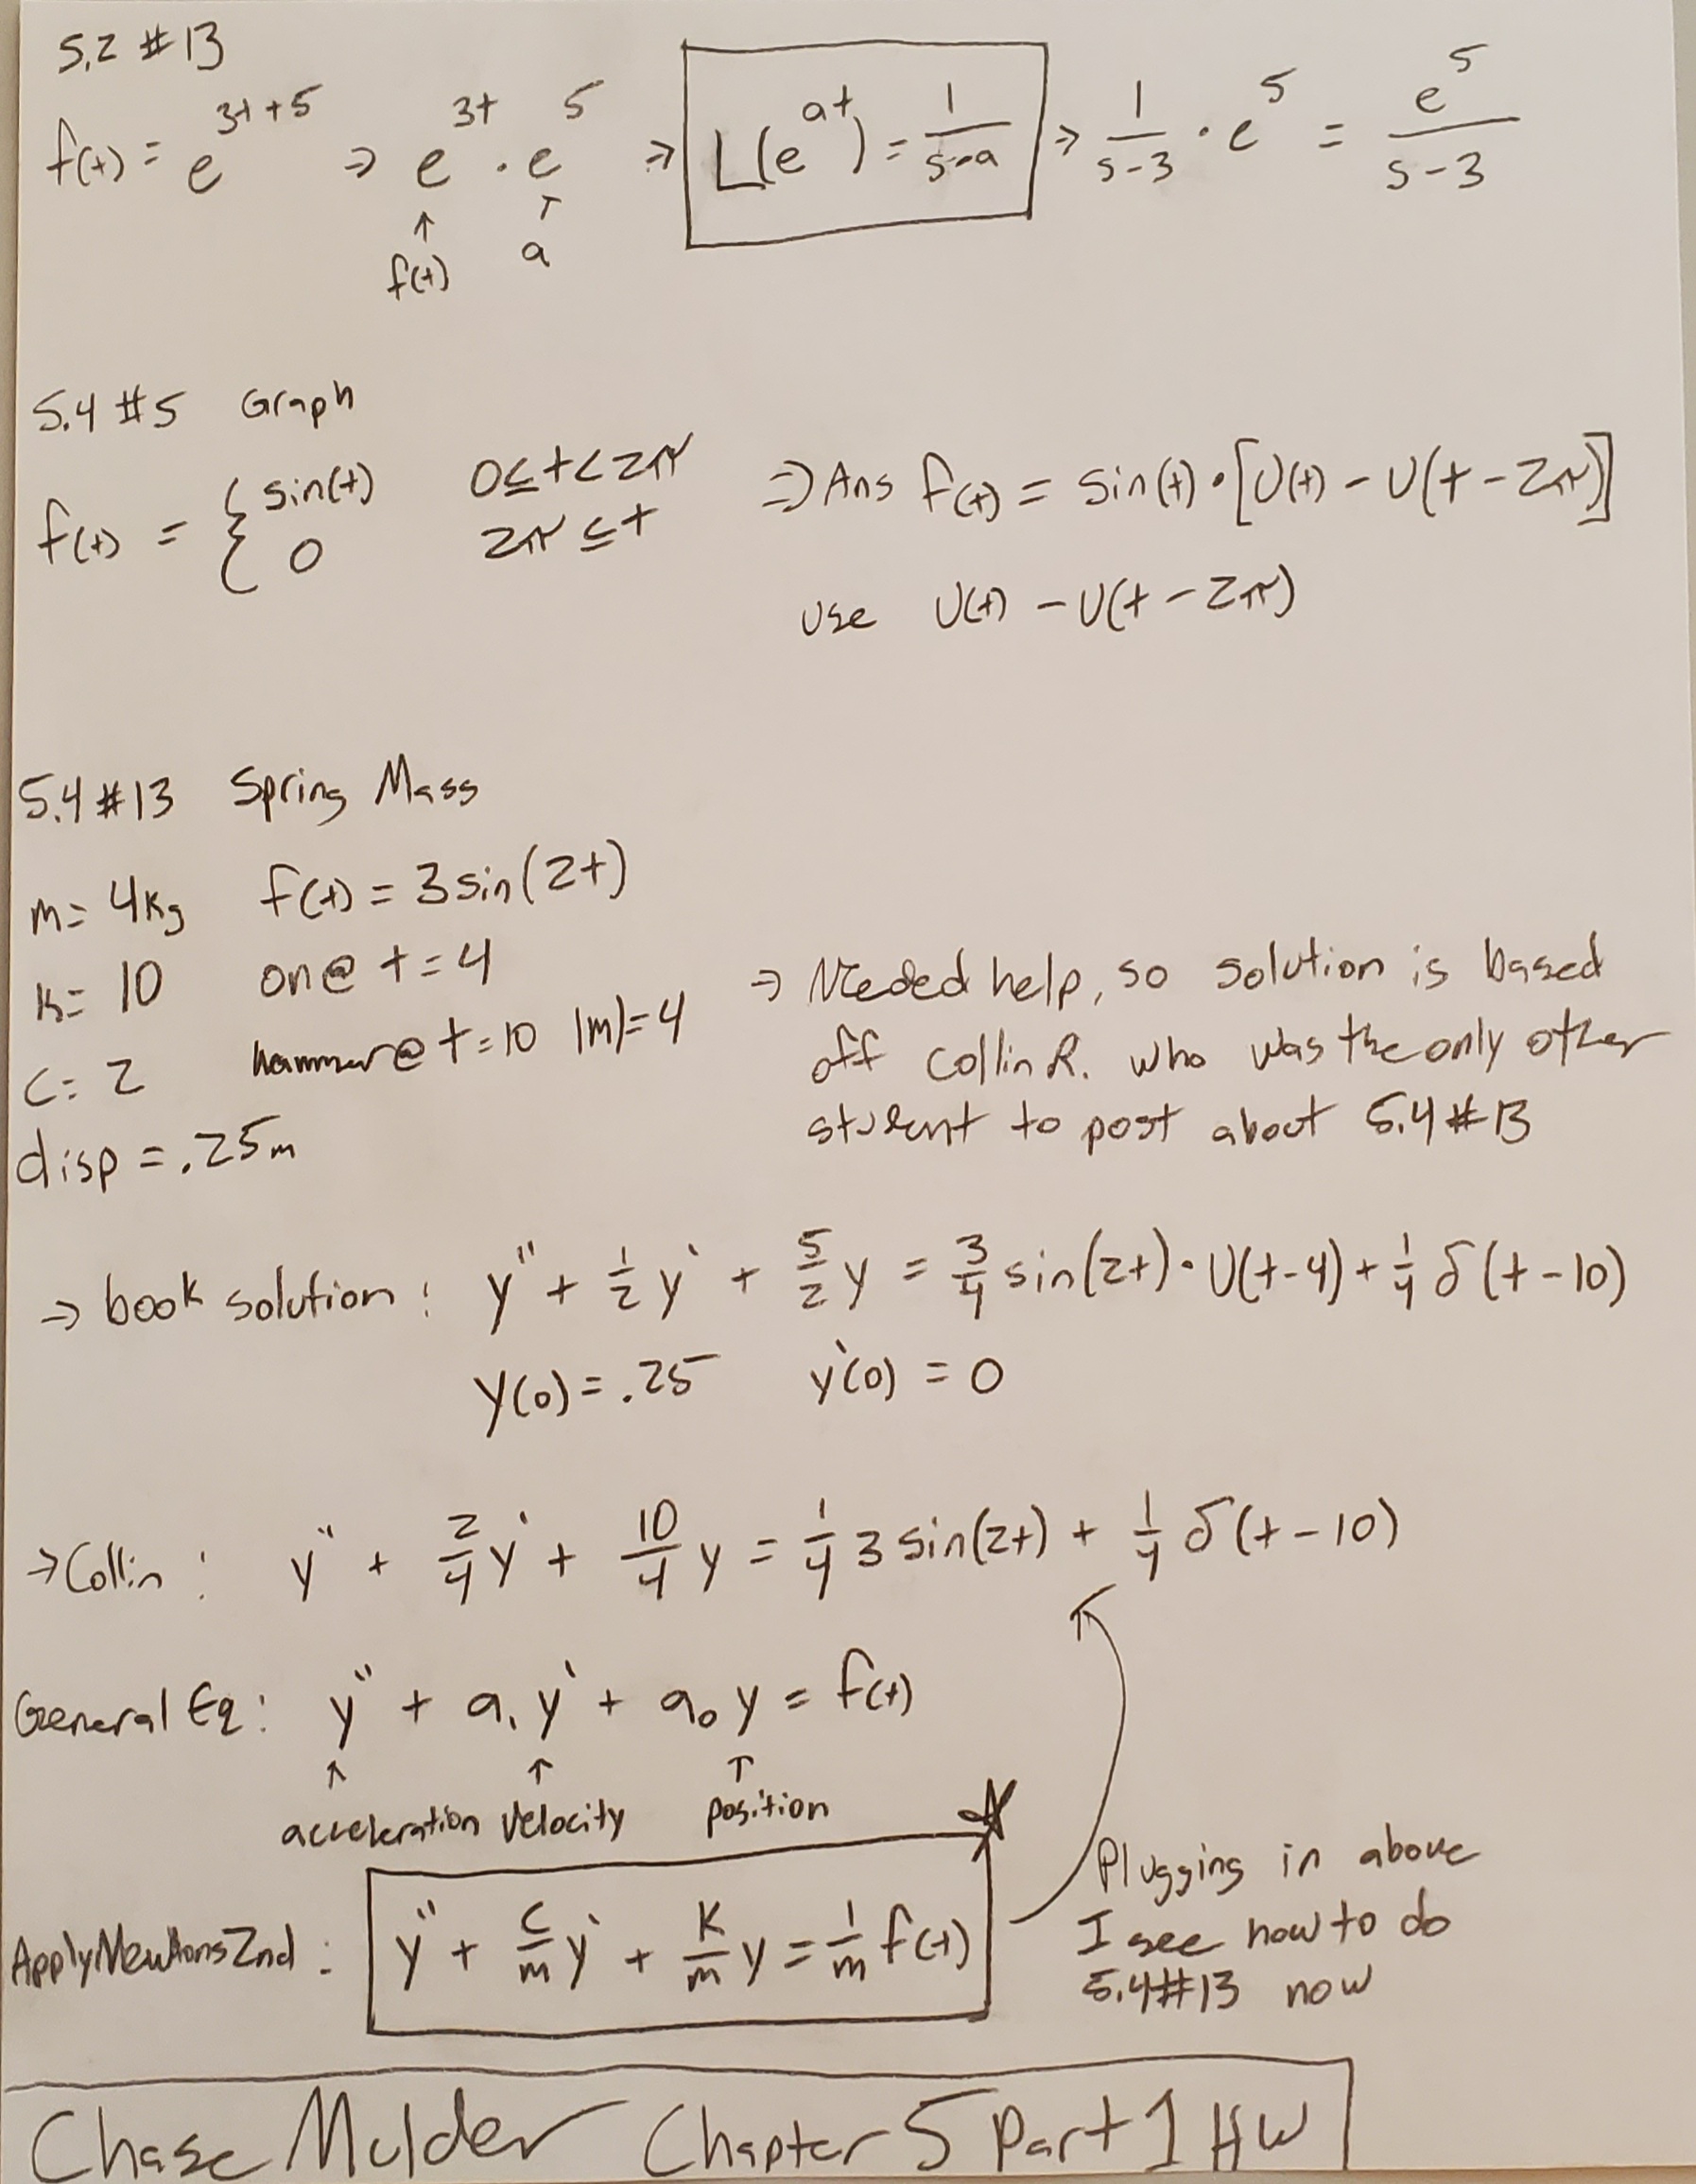 5.2 #13
f(t) = e^{3t+5} ⇒ e^{3t} · e^5 ⇒ L(e^{at}) = 1/(s-a) ⇒ 1/(s-3) · e^5 = e^5/(s-3)
↑ ↑
f(t) a
5.4 #5 Graph
f(t) = { sin(t) 0≤t<2π ⇒ Ans f(t) = sin(t)·[U(t) - U(t-2π)]
0 2π≤t
use U(t) - U(t-2π)
5.4 #13 Spring Mass
m= 4kg f(t) = 3sin(2t)
k= 10 on@ t=4
c= 2 hammer@ t=10 |m|=4
disp = .25m
⇒ Needed help, so solution is based
off Collin R. who was the only other
student to post about 5.4 #13
→ book solution: y'' + 1/2 y' + 5/2 y = 3/4 sin(2t)·U(t-4) + 1/4 δ(t-10)
y(0)=.25 y'(0) = 0
→ Collin: y'' + 2/4 y' + 10/4 y = 1/4 3sin(2t) + 1/4 δ(t-10)
General Eq: y'' + a₁y' + a₀y = f(t)
↑ ↑ ↑
acceleration velocity position
Apply Newtons 2nd: y'' + c/m y' + k/m y = 1/m f(t)
Plugging in above
I see how to do
5.4#13 now
Chase Mulder Chapter 5 Part 1 HW